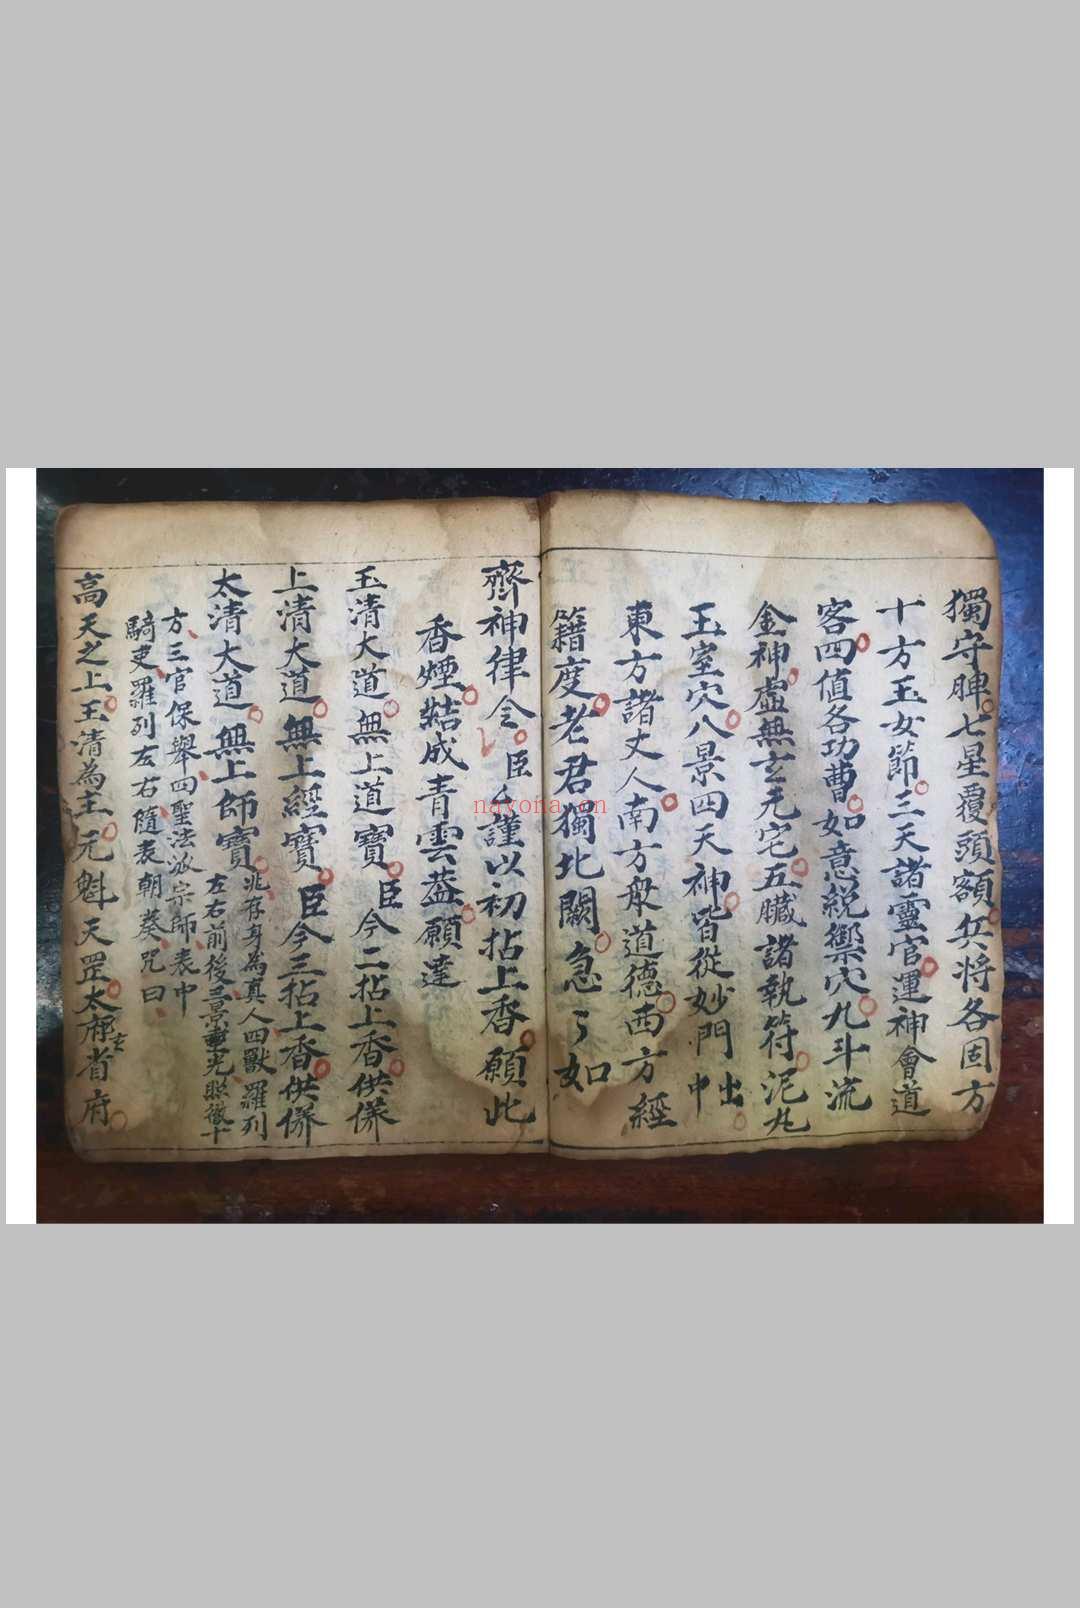 獨守脾七星覆頭額兵将各固方
十方玉女節三天諸靈官運神會道
客四值各功曹如意統禦穴九斗流
金神虛無玄元宅五臟諸執符泥丸
玉室穴八景四天神皆從妙門中出
東方諸丈人南方般道德西方經
籍度老君獨北闕急々如
齊神律令臣厶謹以初拈上香願此
香煙結成青雲蓋願達
玉清大道無上道寶臣今二拈上香供養
上清大道無上經寶臣今三拈上香供養
太清大道無上師寶
兆存身為真人四獸羅列
左右前後三景重光照徹十
方三官保舉四聖法派宗師表中
騎吏羅列左右随表朝奏咒曰
高天之上玉清為主元魁天罡太府省府
nayona.cn